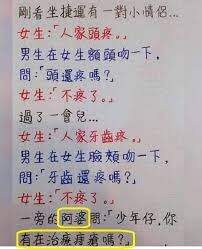 剛看坐捷運有一對小情侶…
女生:「人家頭疼。」
男生在女生額頭吻一下,
問:「頭還疼嗎?」
女生:「不疼了。」
過了一會兒…
女生:「人家牙齒疼。」
男生在女生臉頰吻一下,
問:「牙齒還疼嗎?」
女生:「不疼了。」
一旁的阿婆問:「少年仔,你
有在治療痔瘡嗎?」